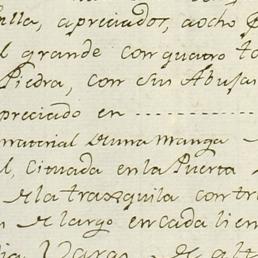 lla, apreciados, aocho
l grande con quatro
Piedra, con sus Abuja
preciado en
material de una Manga
l, cituada en la Puerta
de la trasquila con tr
de largo en cada lien
Varas